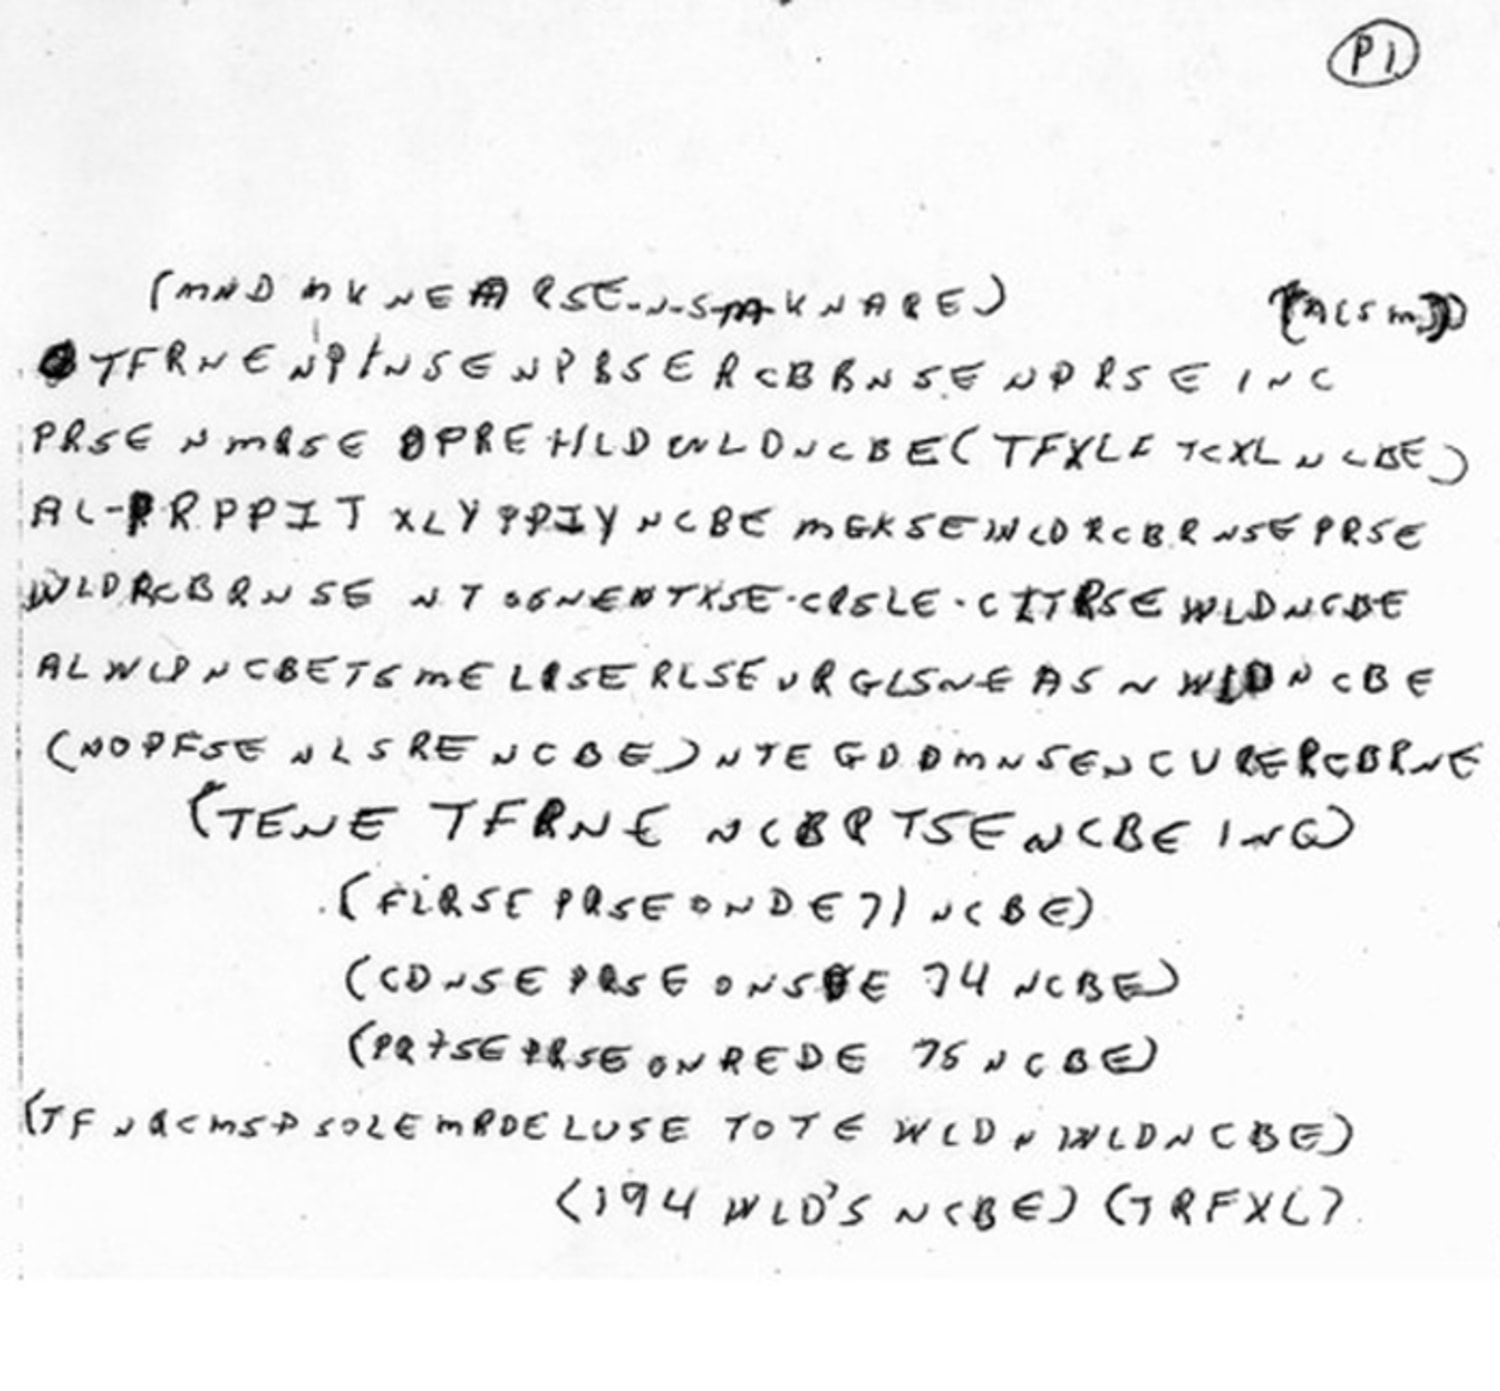 P1
(MND MKNEARSE-N-S-M-KNARE) (ALSM)
TFRNE NPINSE NPBSE RCBBNSE NPRSE INC
PRSE NMRSE OPREHLD WLDNCBE(TFXLF TCXL NCBE)
AL-PRPPIT XLY PPIY NCBE MGKSE INCDRCBRNSE PRSE
WLDRCBRNSE NTSGNENTXSE-CRSLE-CITRSE WLDNCBE
ALWLPNCBETSME LRSE RLSE URGLSNE ASN WLDNCBE
(NOPFSE NLSRE NCBE) NTE GDDMNSENCURERCBRNE
(TENE TFRNE NCBRTSENCBE INC)
(FLRSE PRSE ONDE 71 NCBE)
(CDNSE PRSE ONSDE 74 NCBE)
(PRTSE PRSE ONREDE 75 NCBE)
(TF NRCMSP SOLE MRDE LUSE TOTE WLDN WLDNCBE)
(194 WLD'S NCBE) (TRFXL)